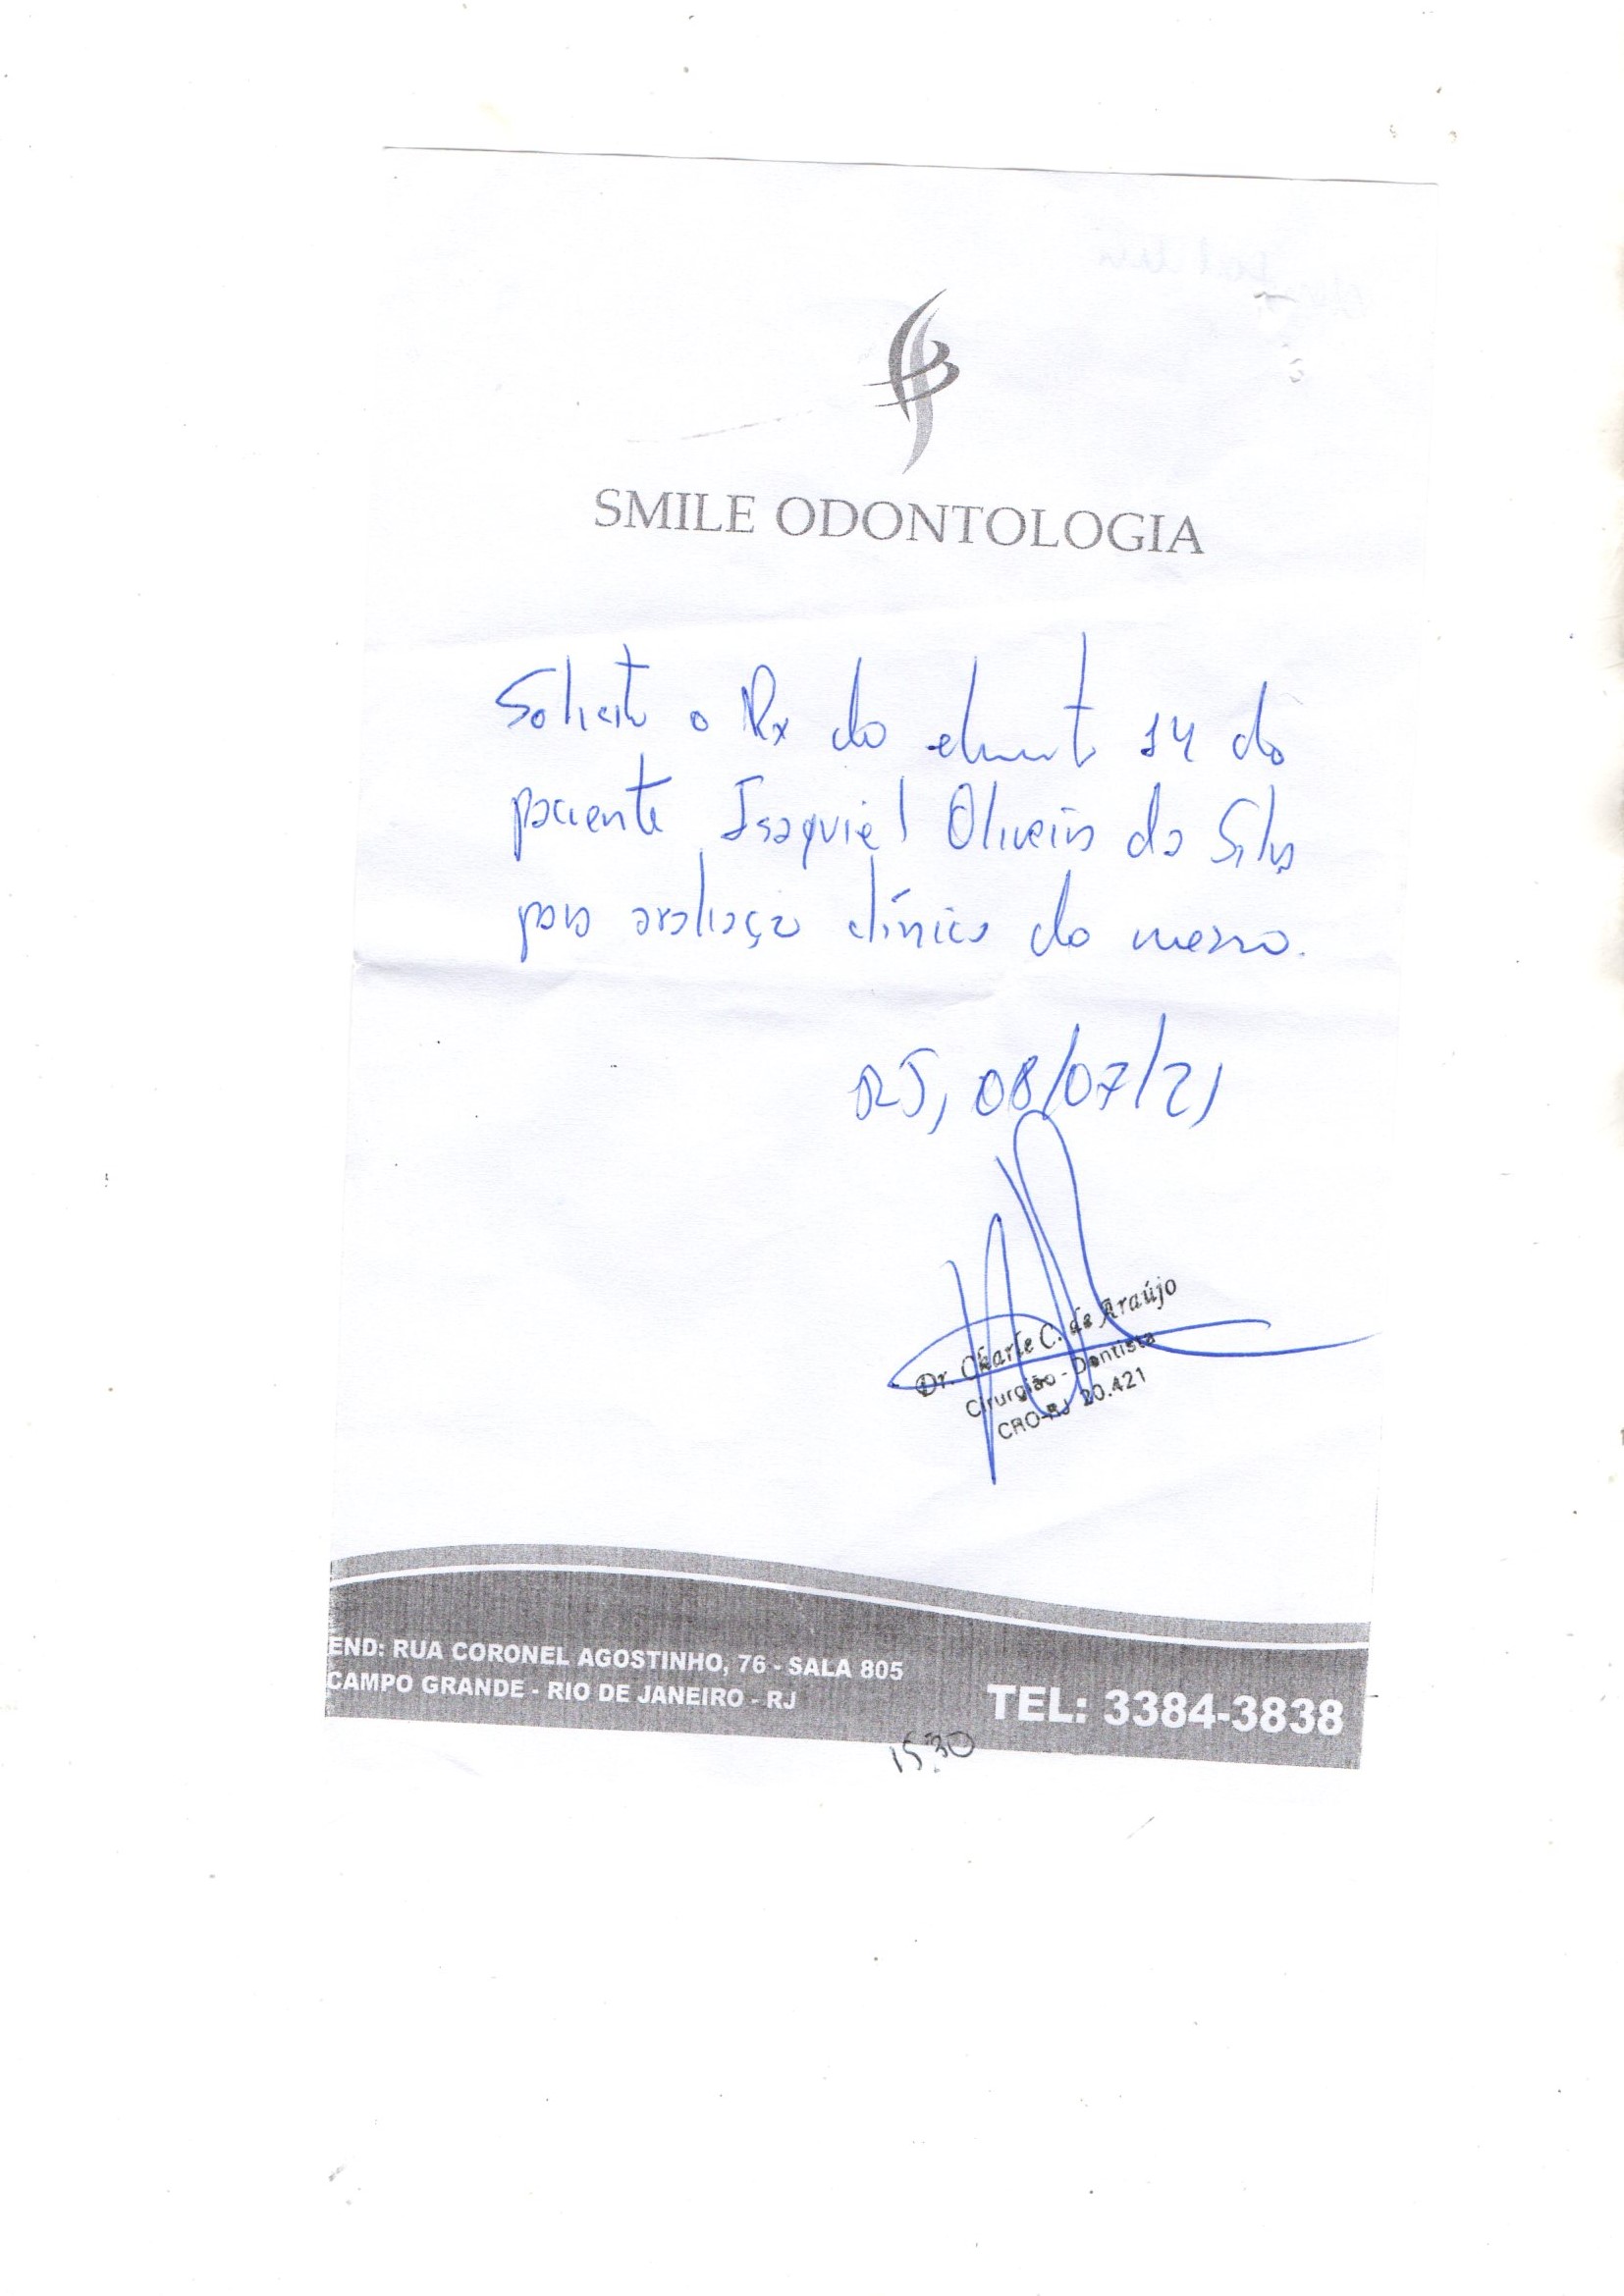 SMILE ODONTOLOGIA
Solicito o Rx do elemento 14 do
paciente Isaquiel Oliveira da Silva
para avaliação clínica do mesmo.
RJ, 08/07/21
Dr. Charle C. de Araújo
Cirurgião - Dentista
CRO-RJ 20.421
END: RUA CORONEL AGOSTINHO, 76 - SALA 805
CAMPO GRANDE - RIO DE JANEIRO - RJ
TEL: 3384-3838
15:30